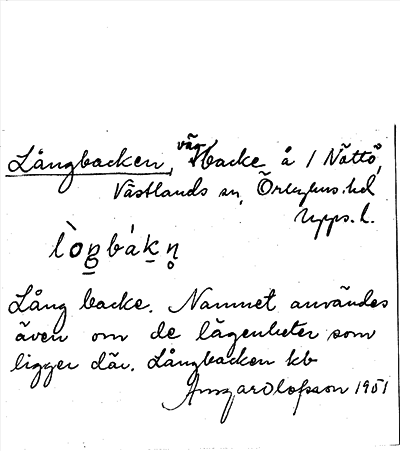 Långbacken, vägbacke å 1 Nöttö,
Västlands sn, Örbyhus hd
Upps. l.
lòŋbákn̥
Lång backe. Namnet användes
även om de lägenheter som
ligger där. Långbacken kb
Ansgar Olofsson 1951